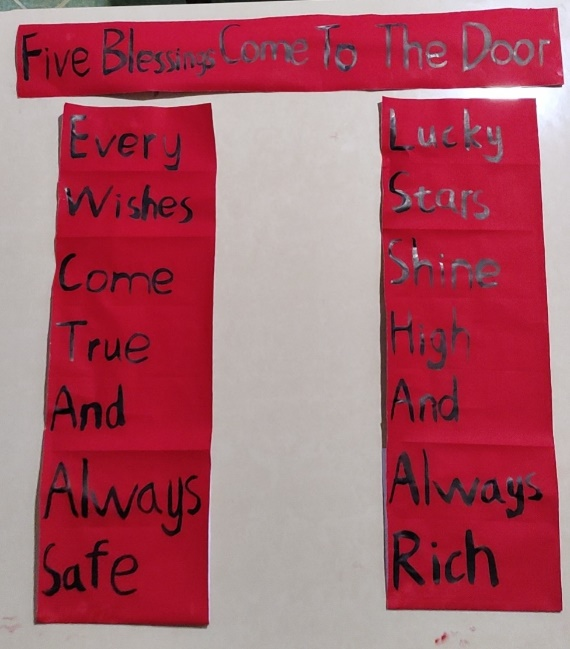 Five Blessings Come To The Door
Every
Wishes
Come
True
And
Always
Safe
Lucky
Stars
Shine
High
And
Always
Rich